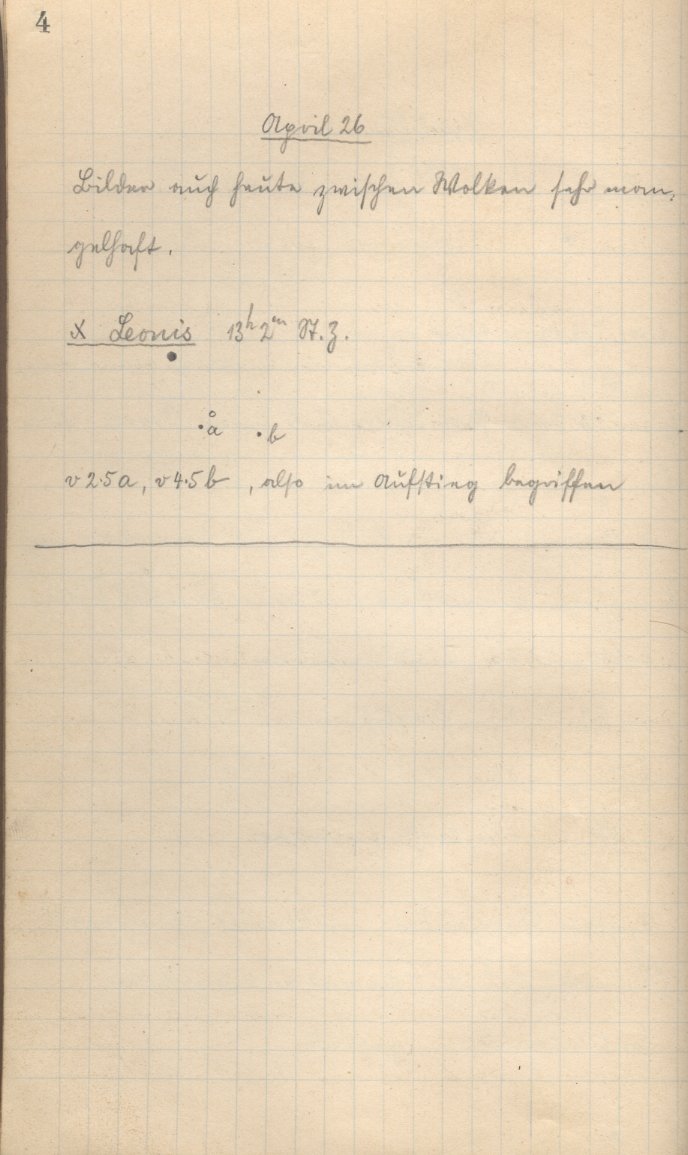 4
April 26
Bilder auch heute zwischen Wolken sehr man-
gelhaft.
X Leonis 13h 2m St. Z.
a b
v 2.5 a, v 4.5 b, also im Aufstieg begriffen